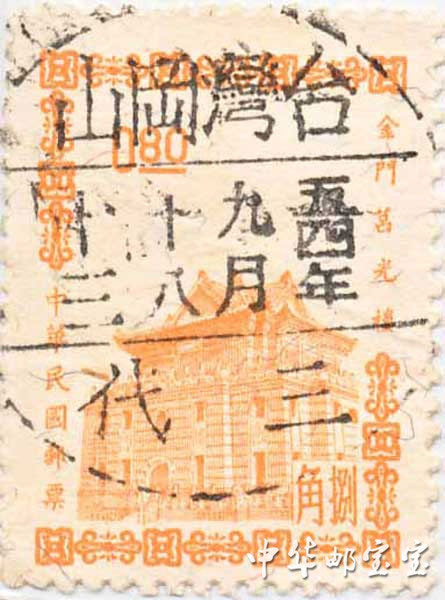 台灣岡山
0.80
金門莒光樓
五四年
九月
十八
十三
中華民國郵票
三代
捌角
中华邮宝宝